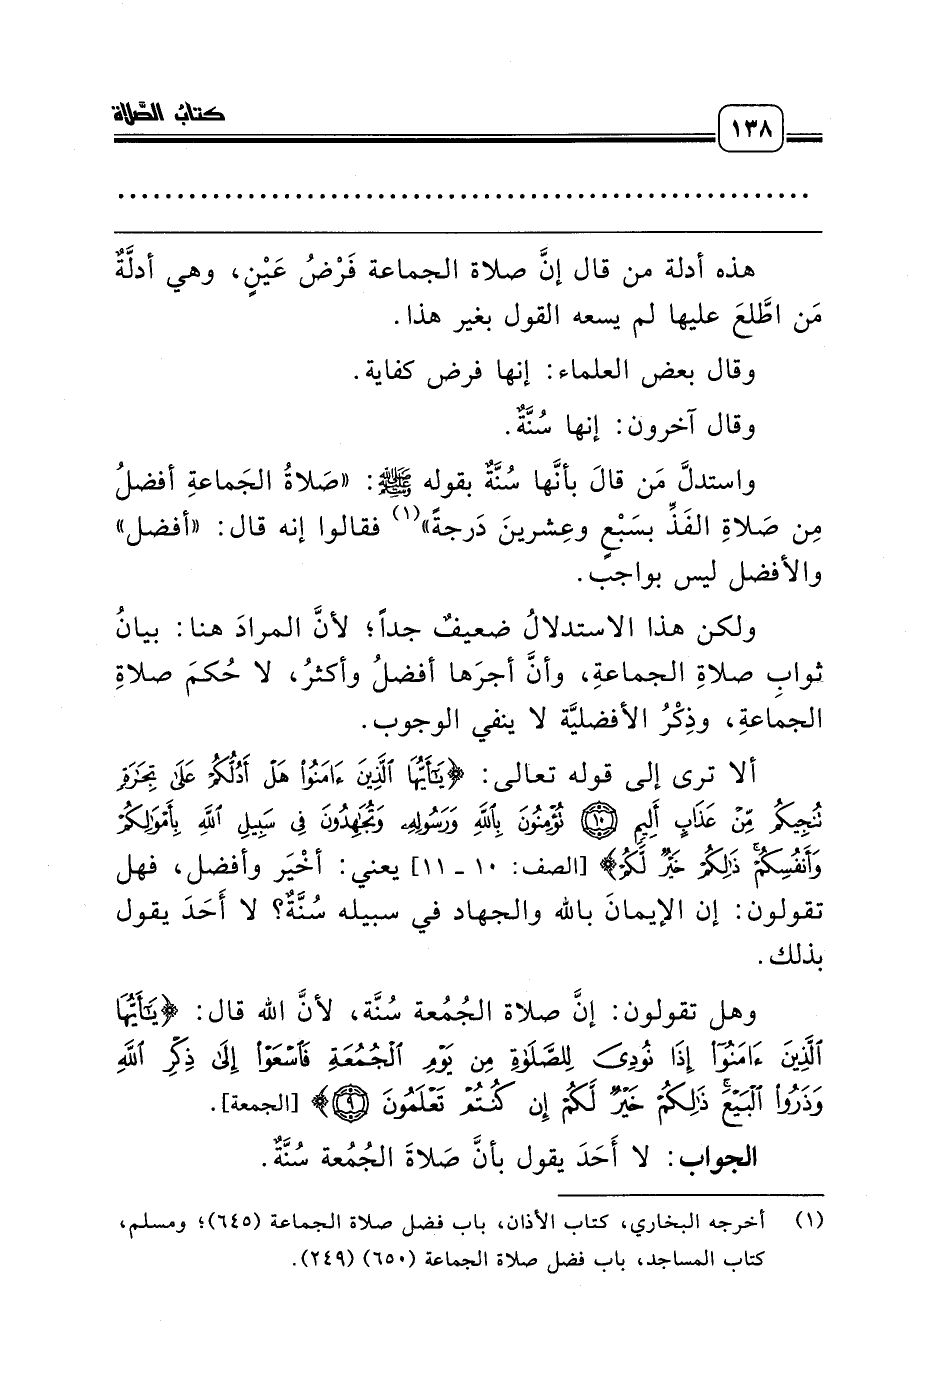 كتاب الصَّلاة
١٣٨
هذه أدلة من قال إنَّ صلاة الجماعة فَرْضُ عَيْنٍ، وهي أدلَّةٌ
مَن اطَّلعَ عليها لم يسعه القول بغير هذا.
وقال بعض العلماء: إنها فرض كفاية.
وقال آخرون: إنها سُنَّةٌ.
واستدلَّ مَن قالَ بأنَّها سُنَّةٌ بقوله ﷺ: «صَلاةُ الجَماعةِ أفضلُ
مِن صَلاةِ الفَذِّ بسَبْعٍ وعِشرينَ دَرجةً»(١) فقالوا إنه قال: «أفضل»
والأفضل ليس بواجب.
ولكن هذا الاستدلالُ ضعيفٌ جداً؛ لأنَّ المرادَ هنا: بيانُ
ثوابِ صلاةِ الجماعةِ، وأنَّ أجرَها أفضلُ وأكثرُ، لا حُكمَ صلاةِ
الجماعةِ، وذِكْرُ الأفضليَّة لا ينفي الوجوب.
ألا ترى إلى قوله تعالى: ﴿يَٰٓأَيُّهَا ٱلَّذِينَ ءَامَنُوا۟ هَلْ أَدُلُّكُمْ عَلَىٰ تِجَٰرَةٍ
تُنجِيكُم مِّنْ عَذَابٍ أَلِيمٍ ۝١٠ تُؤْمِنُونَ بِٱللَّهِ وَرَسُولِهِۦ وَتُجَٰهِدُونَ فِى سَبِيلِ ٱللَّهِ بِأَمْوَٰلِكُمْ
وَأَنفُسِكُمْ ۚ ذَٰلِكُمْ خَيْرٌ لَّكُمْ﴾ [الصف: ١٠ ـ ١١] يعني: أخْيَر وأفضل، فهل
تقولون: إن الإيمانَ بالله والجهاد في سبيله سُنَّةٌ؟ لا أَحَدَ يقول
بذلك.
وهل تقولون: إنَّ صلاة الجُمُعة سُنَّة، لأنَّ الله قال: ﴿يَٰٓأَيُّهَا
ٱلَّذِينَ ءَامَنُوٓا۟ إِذَا نُودِىَ لِلصَّلَوٰةِ مِن يَوْمِ ٱلْجُمُعَةِ فَٱسْعَوْا۟ إِلَىٰ ذِكْرِ ٱللَّهِ
وَذَرُوا۟ ٱلْبَيْعَ ۚ ذَٰلِكُمْ خَيْرٌ لَّكُمْ إِن كُنتُمْ تَعْلَمُونَ ۝٩﴾ [الجمعة].
الجواب: لا أَحَدَ يقول بأنَّ صَلاةَ الجُمُعة سُنَّةٌ.
(١) أخرجه البخاري، كتاب الأذان، باب فضل صلاة الجماعة (٦٤٥)؛ ومسلم،
كتاب المساجد، باب فضل صلاة الجماعة (٦٥٠) (٢٤٩).